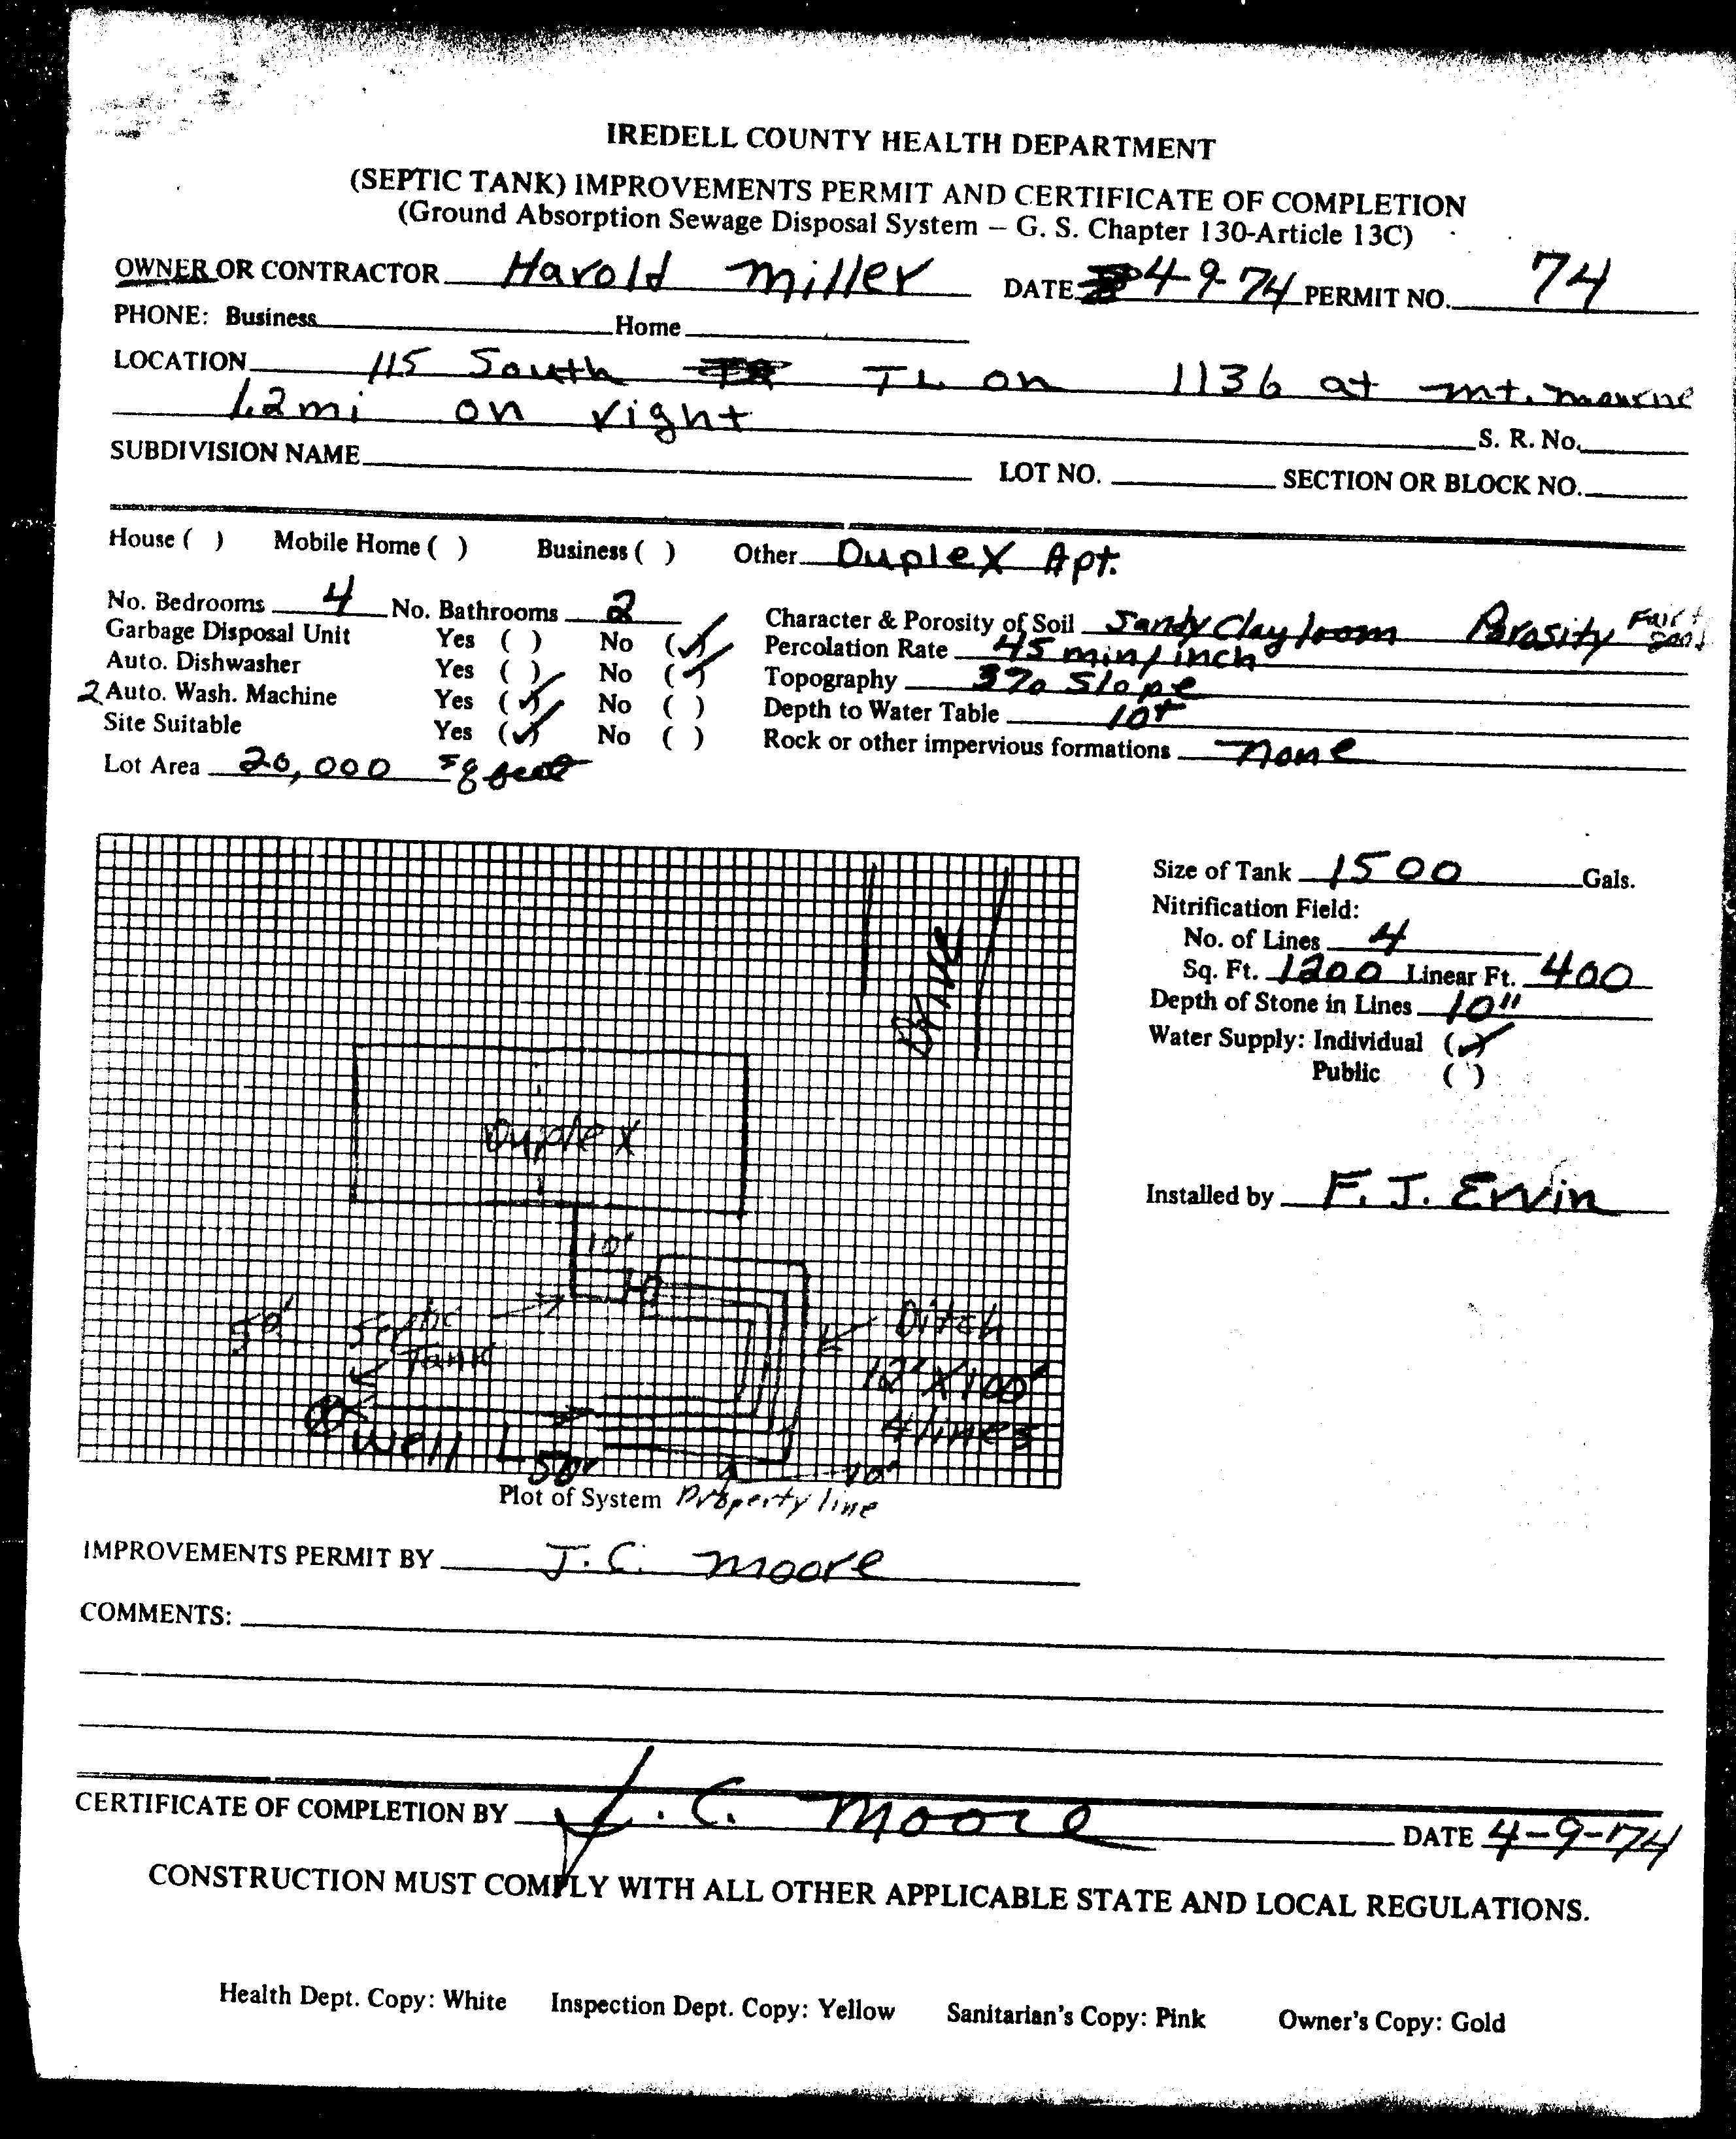 IREDELL COUNTY HEALTH DEPARTMENT
(SEPTIC TANK) IMPROVEMENTS PERMIT AND CERTIFICATE OF COMPLETION
(Ground Absorption Sewage Disposal System – G. S. Chapter 130-Article 13C)
OWNER OR CONTRACTOR Harold Miller DATE 4-9-74 PERMIT NO. 74
PHONE: Business Home
LOCATION 115 South TL on 1136 at Mt. Mourne
1.2 mi on right S. R. No.
SUBDIVISION NAME LOT NO. SECTION OR BLOCK NO.
House ( ) Mobile Home ( ) Business ( ) Other Duplex Apt.
No. Bedrooms 4 No. Bathrooms 2 Character & Porosity of Soil Sandy Clay loom Porosity Fair + good
Garbage Disposal Unit Yes ( ) No (✓) Percolation Rate 45 min/inch
Auto. Dishwasher Yes ( ) No (✓) Topography 3% Slope
2 Auto. Wash. Machine Yes (✓) No ( ) Depth to Water Table 10+
Site Suitable Yes (✓) No ( ) Rock or other impervious formations none
Lot Area 20,000 sq feet
Size of Tank 1500 Gals.
Nitrification Field:
No. of Lines 4
Sq. Ft. 1200 Linear Ft. 400
Depth of Stone in Lines 10"
Water Supply: Individual (✓)
Public ( )
Installed by F. J. Ervin
Drive
Duplex
10'
50' Septic Tank
Ditch
12" X 100'
4 lines
Well 50' 10'
Plot of System Property line
IMPROVEMENTS PERMIT BY J. C. Moore
COMMENTS:
CERTIFICATE OF COMPLETION BY J. C. Moore DATE 4-9-74
CONSTRUCTION MUST COMPLY WITH ALL OTHER APPLICABLE STATE AND LOCAL REGULATIONS.
Health Dept. Copy: White Inspection Dept. Copy: Yellow Sanitarian's Copy: Pink Owner's Copy: Gold